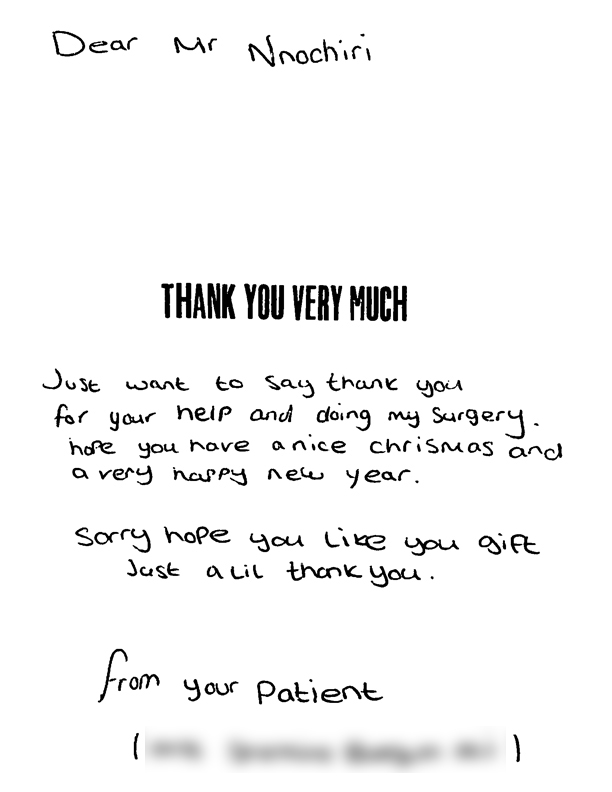 Dear Mr Nnochiri
THANK YOU VERY MUCH
Just want to say thank you
for your help and doing my surgery.
hope you have a nice chrismas and
a very happy new year.
Sorry hope you like you gift
Just a lil thank you.
from your Patient
( )